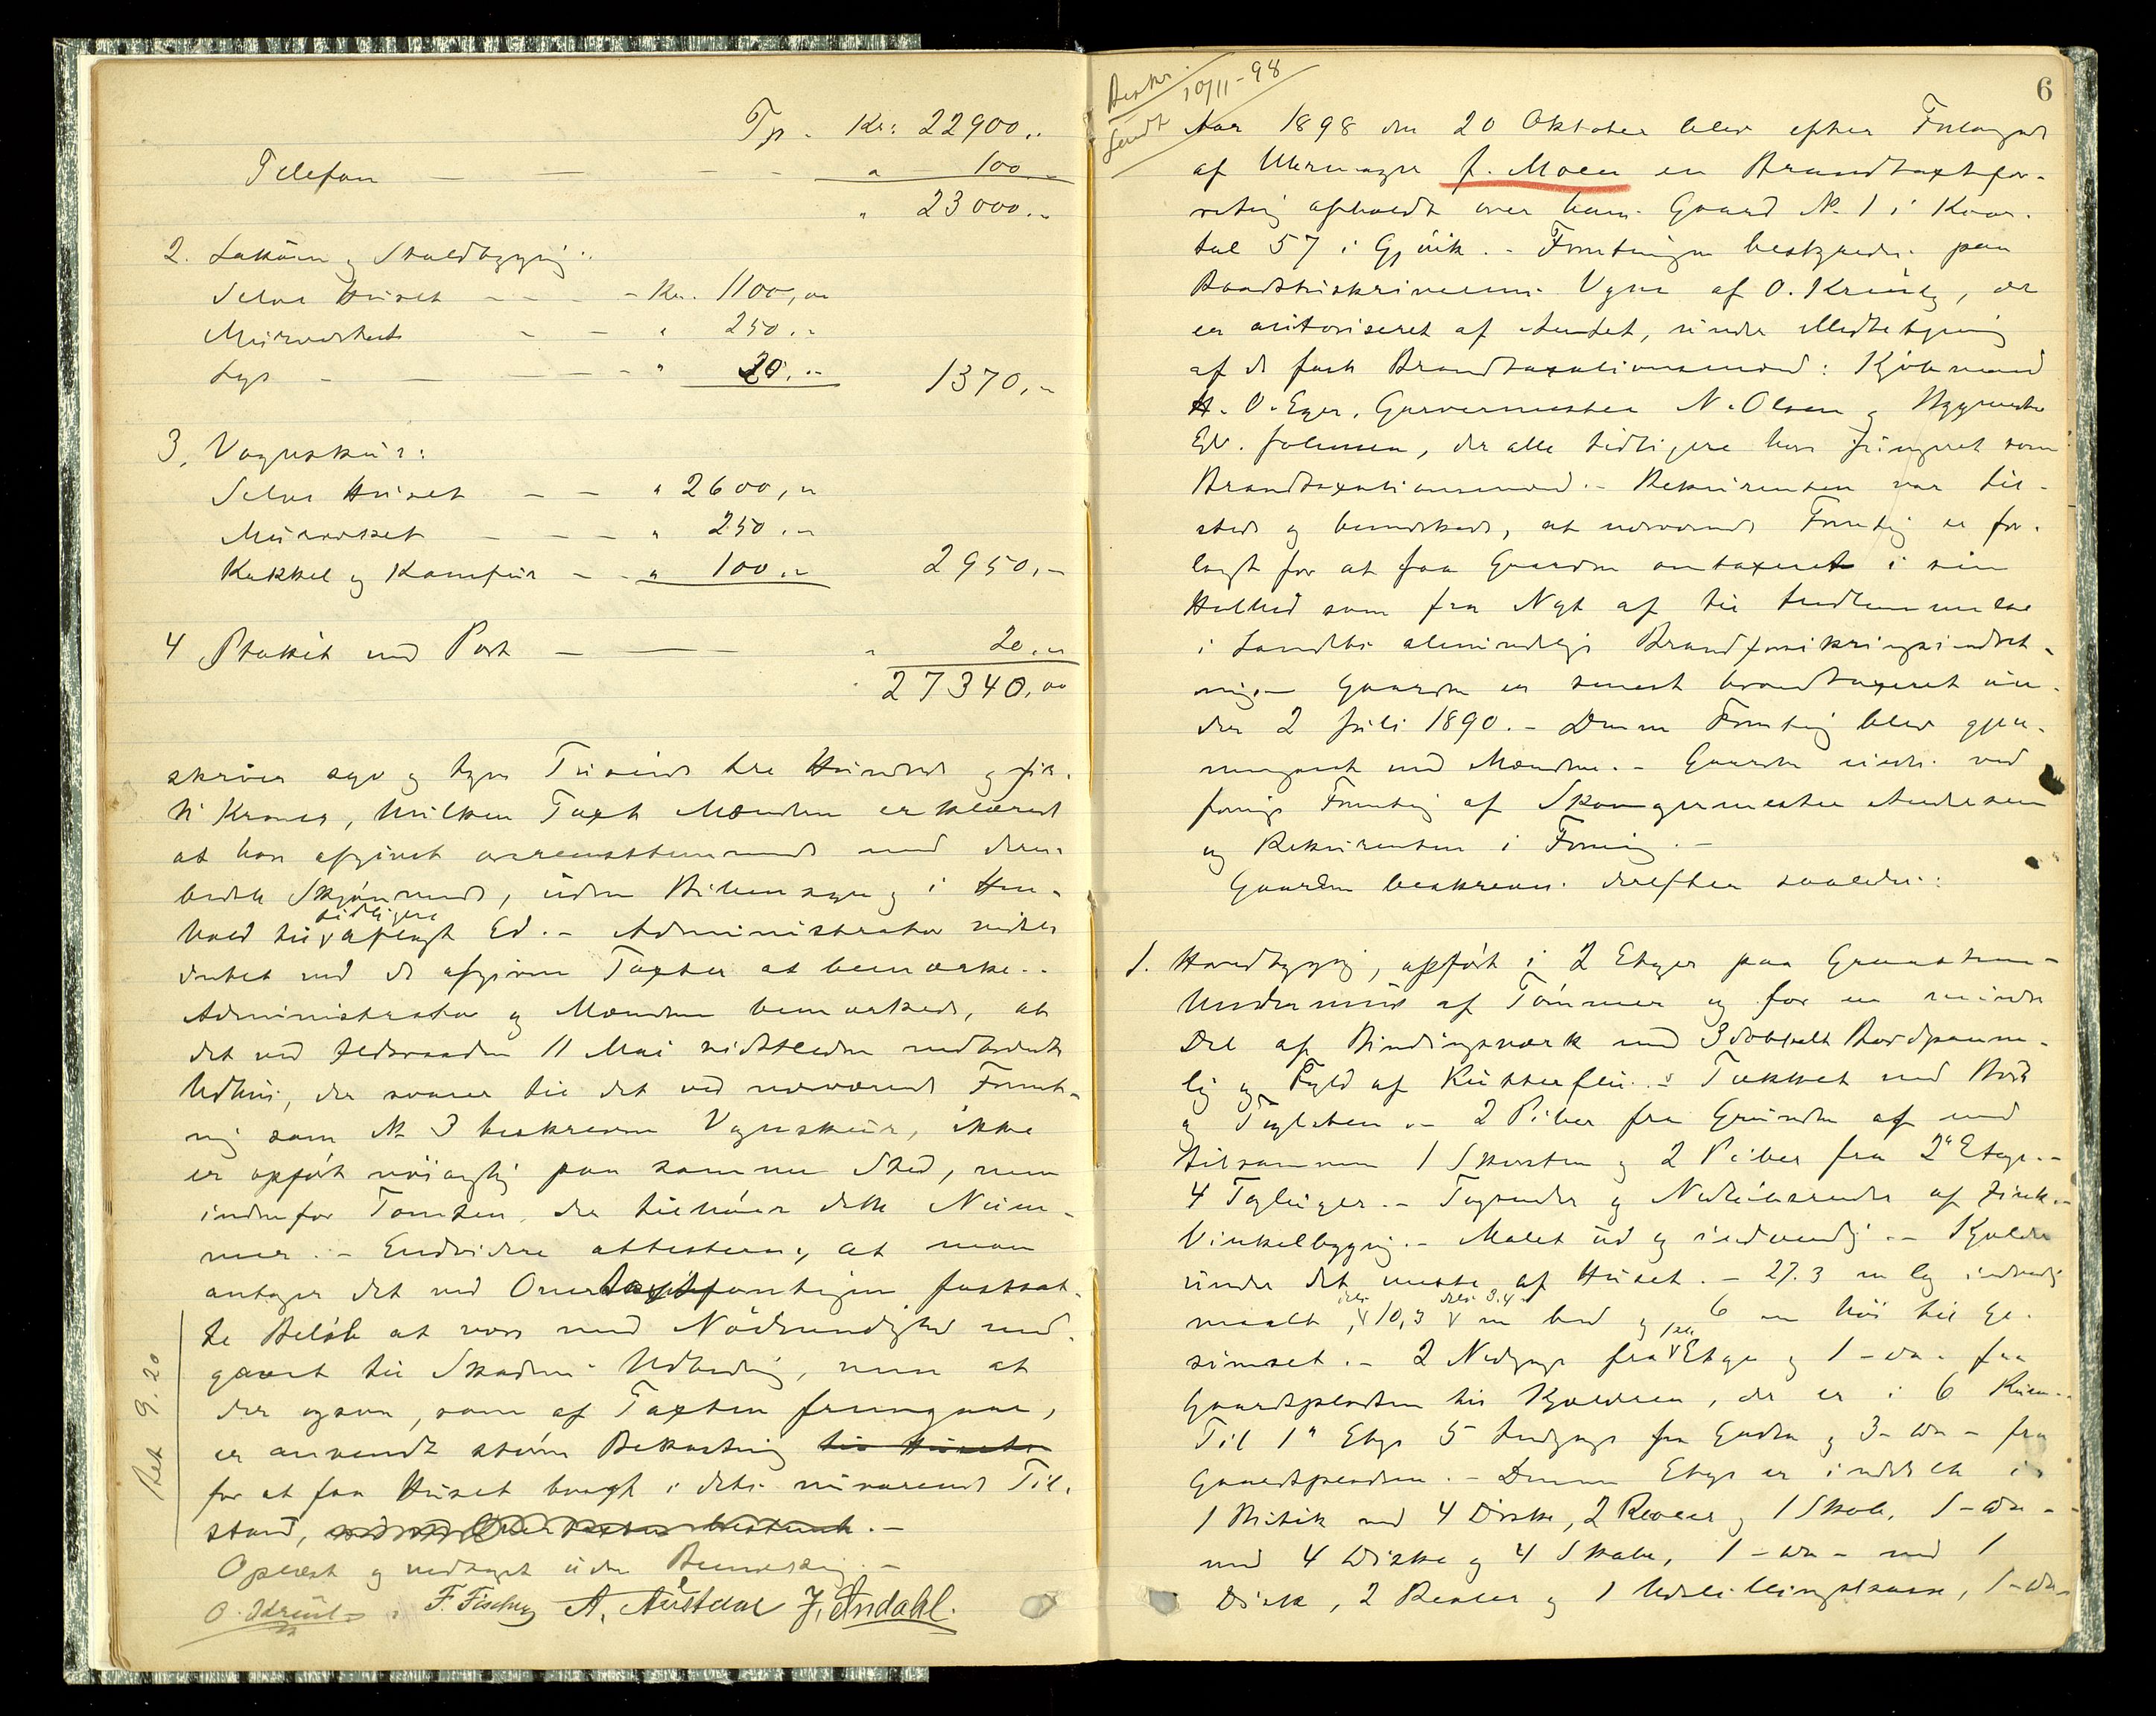 Tp. Kr: 22900..
Telefon — — - - " 100 -
" 23000..
2. Lokum og Staldbygning:
Selve Huset - - - - Kr. 1100,00
Murværket - - " 250..
Lys - - - - " 20,.. 1370,-
3. Vognskur:
Selve Huset - - " 2600,"
Murværket - - - " 250.."
Kakkel og Komfur - - " 100.." 2950,-
4 Plankit med Port - — - " 20.."
27340,00
skriver syv og tyve Tusinde tre Hundrede og fir-
ti Kroner, hvilken Taxt Mændene erklærede
at have afgivet overensstemmende med deres
bedste Skjønnende, uden Bihensyn og i Hen-
hold til tidligere aflagt Ed. - Administrator vidste
Intet ved de afgivne Taxter at bemærke. -
Administrator og Mændene bemærkede, at
det ved Ildsvaaden 11 Mai sidstleden nedbrændte
Udhus, der svarer til det ved nærværende Forret-
ning som No 3 beskrevne Vognskur, ikke
er opført nøiagtig paa samme Sted, men
indenfor Tomten, der tilhører dette Num-
mer. - Endvidere attesteres, at man
antager det ved Overtaxtforretningen fastsat-
te Beløb at være med Nødvendighed med-
gaaet til Skadens Udbedring, men at
der ogsaa, som af Taxten fremgaar,
er anvendt større Bekostning til Husets
for at faa Huset bragt i dets nuværende Til-
stand,
Oplæst og vedtaget uden Bemærkning. -
O. Kreutz. F. Fischer A. Austdal J. Andahl.
Ret 9.20
Beskr. 10/11-98
sendt
6
Aar 1898 den 20 Oktober blev efter Forlangende
af Uhrmager J. Moen en Brandtaxtfor-
retning afholdt over hans Gaard No 1 i Kvar-
tal 57 i Gjøvik. - Forretningen bestyredes paa
Raadstueskriverens Vegne af O. Kreutz, der
er autoriseret af Amtet, under Medbetjening
af de faste Brandtaxationsmænd: Kjøbmand
H. O. Eger, Garvermester N. Olsen og Bygmester
Edv. Johnsen, der alle tidligere har fungeret som
Brandtaxationsmænd. - Rekvirenten var til-
stede og bemærkede, at nærværende Forretning er for-
langt for at faa Gaarden omtaxeret i sin
Helhed som fra Nyt af til Indlemmelse
i Landets almindelige Brandforsikringsindret-
ning. - Gaarden er senest brandtaxeret un-
der 2 Juli 1890. - Denne Forretning blev gjen-
nemgaaet med Mændene. - Gaarden eiedes ved
forrige Forretning af Skomagermester Andresen
og Rekvirenten i Forening. -
Gaarden beskreves derefter saaledes:
1. Hovedbygning, opført i 2 Etager paa Graastens-
Undermur af Tømmer og for en mindre
Del af Bindingsværk med 3dobbelt Bordpanne-
ling og Fyld af Kutterflis. - Tækket med Bord
og Tagsten. - 2 Piber fra Grunden af med
tilsammen 1 Skorsten og 2 Piber fra 2n Etage. -
4 Tagluger. - Tagrender og Nedløbsrender af Zink. -
Vinkelbygning. - Malet ud og indvendig. - Kjælder
under det meste af Huset. - 27.3 m lg indvendig
maalt, dels 10,3 dels 3.4 m bred og 6 m høi til Ge-
simset. - 2 Nedgange fra 1ste Etage og 1 - do - fra
Gaardspladsen til Kjælderen, der er i 6 Rum. -
Til 1n Etage 5 Indgange fra Gaden og 3 - do - fra
Gaardspladsen. - Denne Etage er inddelt i:
1 Butik med 4 Diske, 2 Reoler og 1 Skab, 1 - do -
med 4 Diske og 4 Skabe, 1 - do - med 1
Disk, 2 Reoler og 1 Udstillingskasse, 1 - do -